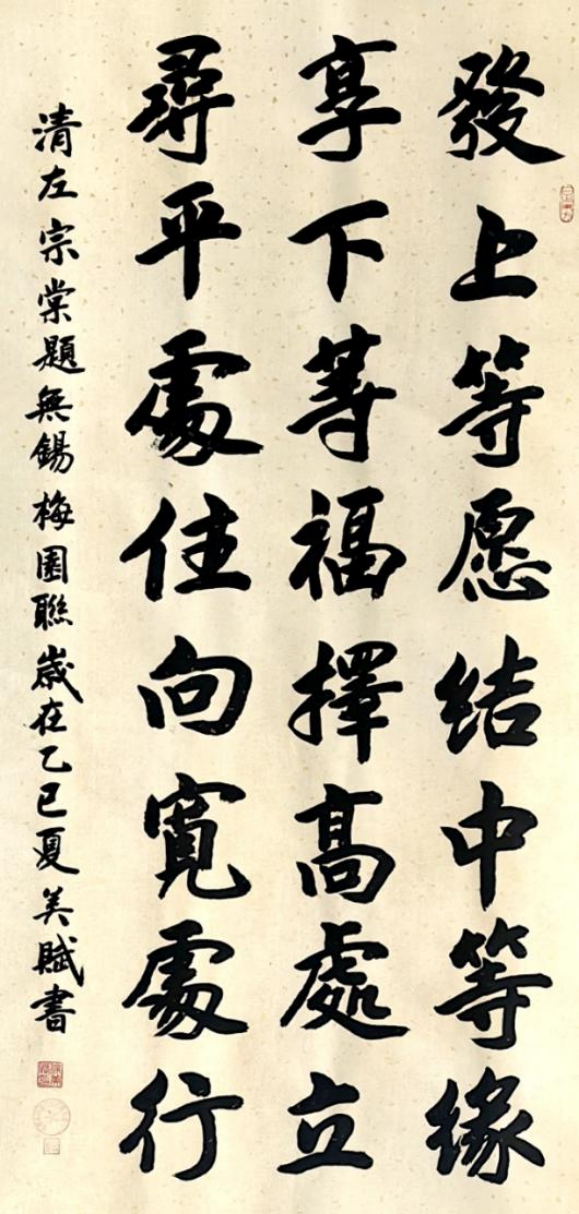 發上等愿結中等緣
享下等福擇高處立
尋平處住向寬處行
清左宗棠題無錫梅園聯歲在乙巳夏美賦書